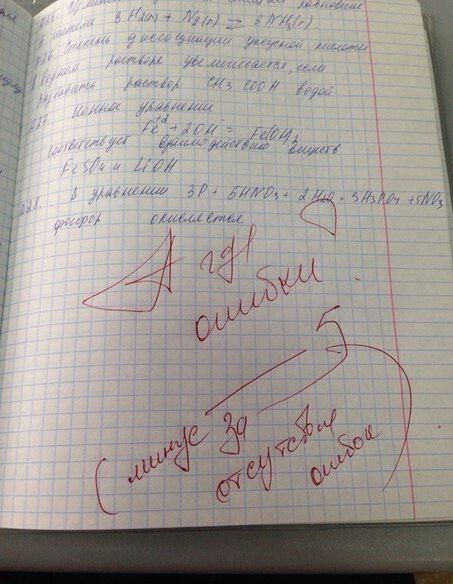 равновесие
3H2(г) + N2(г) = 2NH3(г).
Степень диссоциации уксусной кислоты
в водном растворе увеличивается, если
разбавить раствор CH3COOH водой
Ионное уравнение
Fe+2 + 2OH- = Fe(OH)2
соответствует взаимодействию веществ
FeSO4 и LiOH
28. В уравнении 3P + 5HNO3 + 2H2O = 3H3PO4 + 5NO
фосфор окисляется
А где
ошибки?
5
(минус за
отсутствие
ошибок